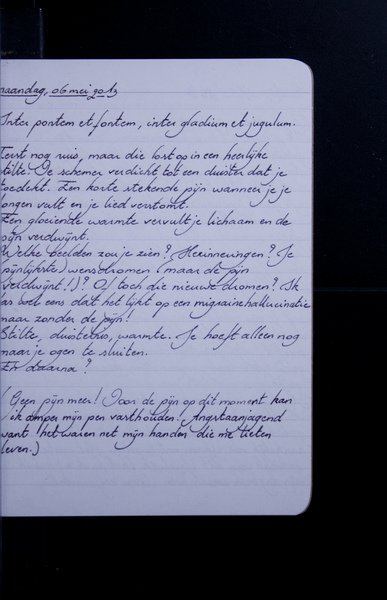 maandag, 06 mei 2013
Inter pontem et fontem, inter gladium et jugulum.
Eerst nog ruis, maar die lost op in een heerlijke
stilte. De schemer verdicht tot een duister dat je
toedekt. Een korte stekende pijn wanneer je je
longen vult en je lied verstomt.
Een gloeiende warmte vervult je lichaam en de
pijn verdwijnt.
Welke beelden zou je zien? Herinneringen? Je
(pijnlijkste) wensdromen (maar de pijn
verdwijnt!)? Of toch die nieuwe dromen? Ik
las wel eens dat het lijkt op een migrainehallucinatie
maar zonder de pijn!
Stilte, duisternis, warmte. Je hoeft alleen nog
maar je ogen te sluiten.
En daarna?
(Geen pijn meer! Door de pijn op dit moment kan
ik amper mijn pen vasthouden! Angstaanjagend
want het waren net mijn handen die me lieten
leven.)